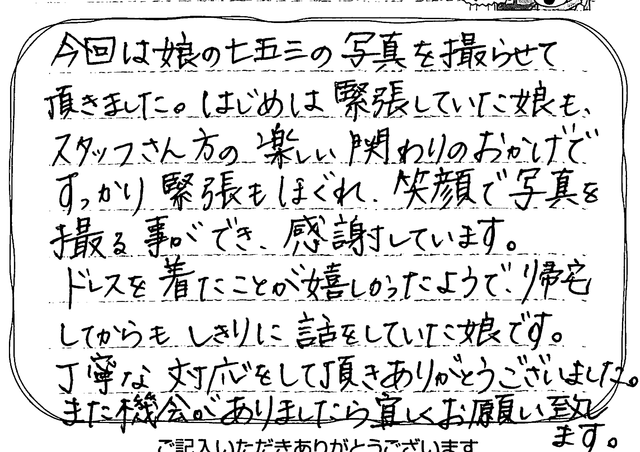 今回は娘の七五三の写真を撮らせて
頂きました。はじめは緊張していた娘も、
スタッフさん方の楽しい関わりのおかげで
すっかり緊張もほぐれ、笑顔で写真を
撮る事ができ、感謝しています。
ドレスを着たことが嬉しかったようで、帰宅
してからもしきりに話をしていた娘です。
丁寧な対応をして頂きありがとうございました。
また機会がありましたら宜しくお願い致し
ます。
ご記入いただきありがとうございます